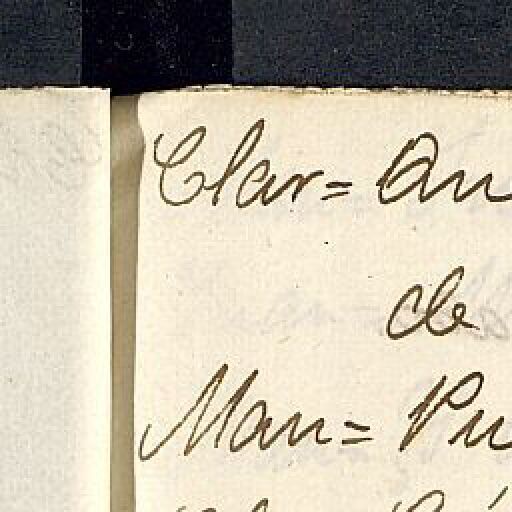 Clar= Qu
de
Man= Pu